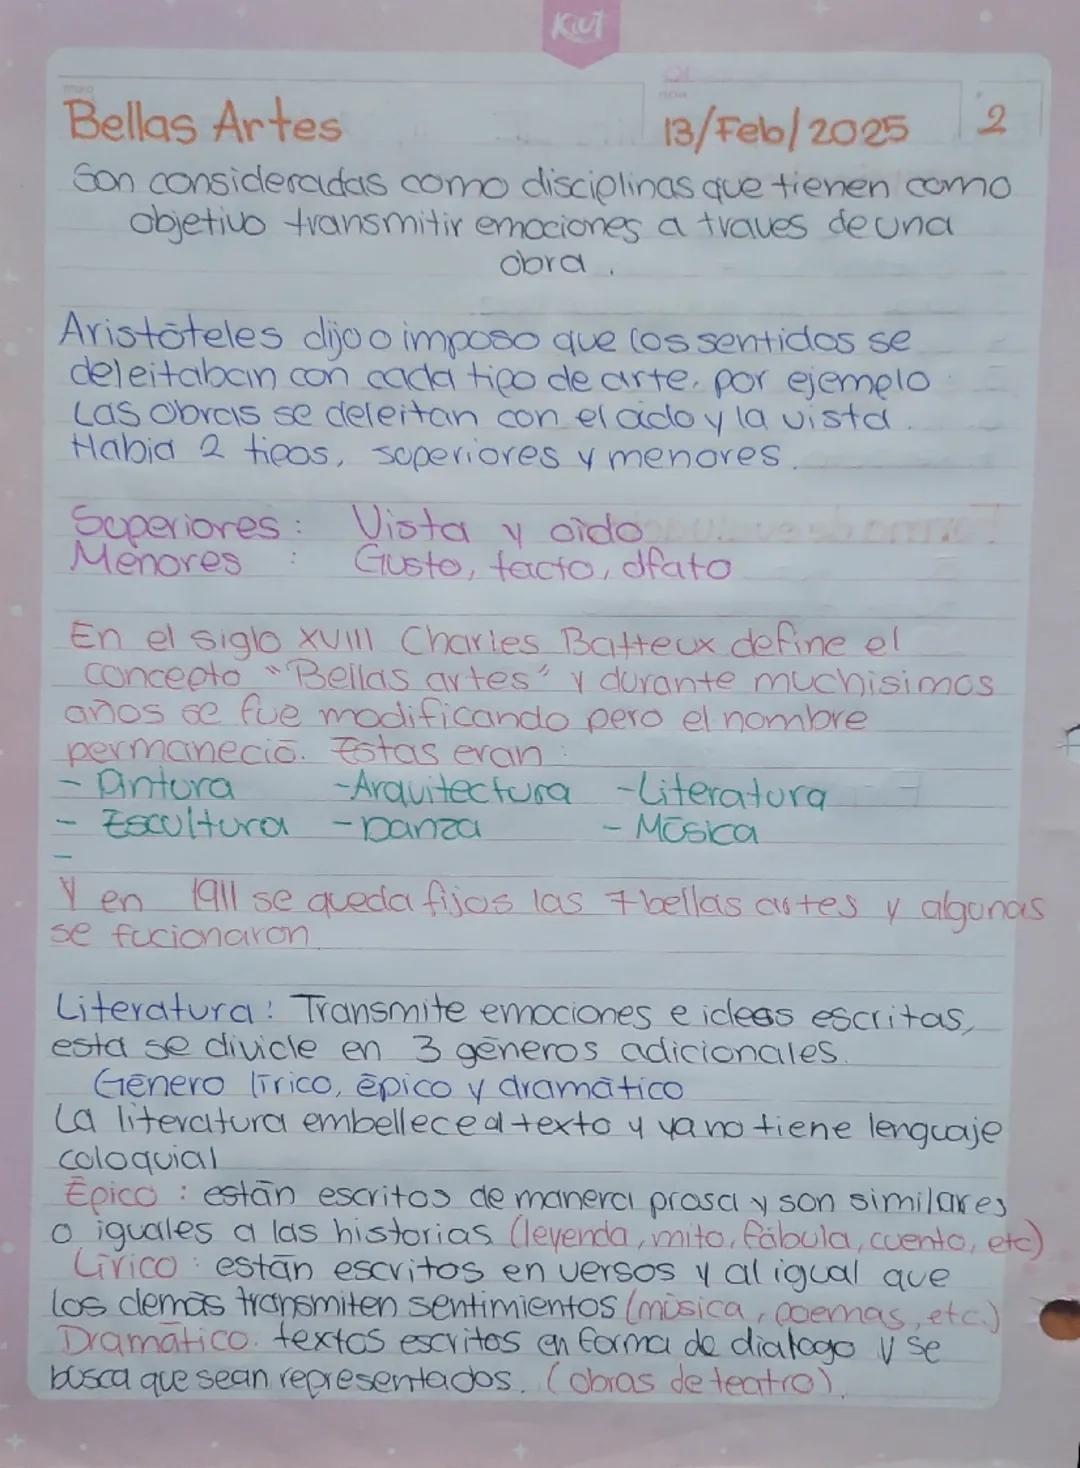 Kiut
Bellas Artes 13/Feb/2025 2
Son consideradas como disciplinas que tienen como
objetivo transmitir emociones a traves de una
obra.
Aristóteles dijo o imposo que los sentidos se
deleitaban con cada tipo de arte, por ejemplo
Las obras se deleitan con el oido y la vista.
Habia 2 tipos, superiores y menores.
Superiores: Vista y oido
Menores : Gusto, tacto, olfato
En el siglo XVIII Charles Batteux define el
concepto "Bellas artes" y durante muchisimos
años se fue modificando pero el nombre
permaneció. Estas eran:
- Pintura -Arquitectura -Literatura
- Escultura -Danza - Música
-
Y en 1911 se queda fijas las 7 bellas artes y algunas
se fucionaron
Literatura: Transmite emociones e ideas escritas,
esta se divide en 3 géneros adicionales.
Género lírico, épico y dramático
La literatura embellece al texto y ya no tiene lenguaje
coloquial
Épico: están escritos de manera prosa y son similares
o iguales a las historias (leyenda, mito, fábula, cuento, etc)
Lírico: están escritos en versos y al igual que
los demás transmiten sentimientos (música, poemas, etc.)
Dramático. textos escritos en forma de dialogo y se
busca que sean representados. (obras de teatro).